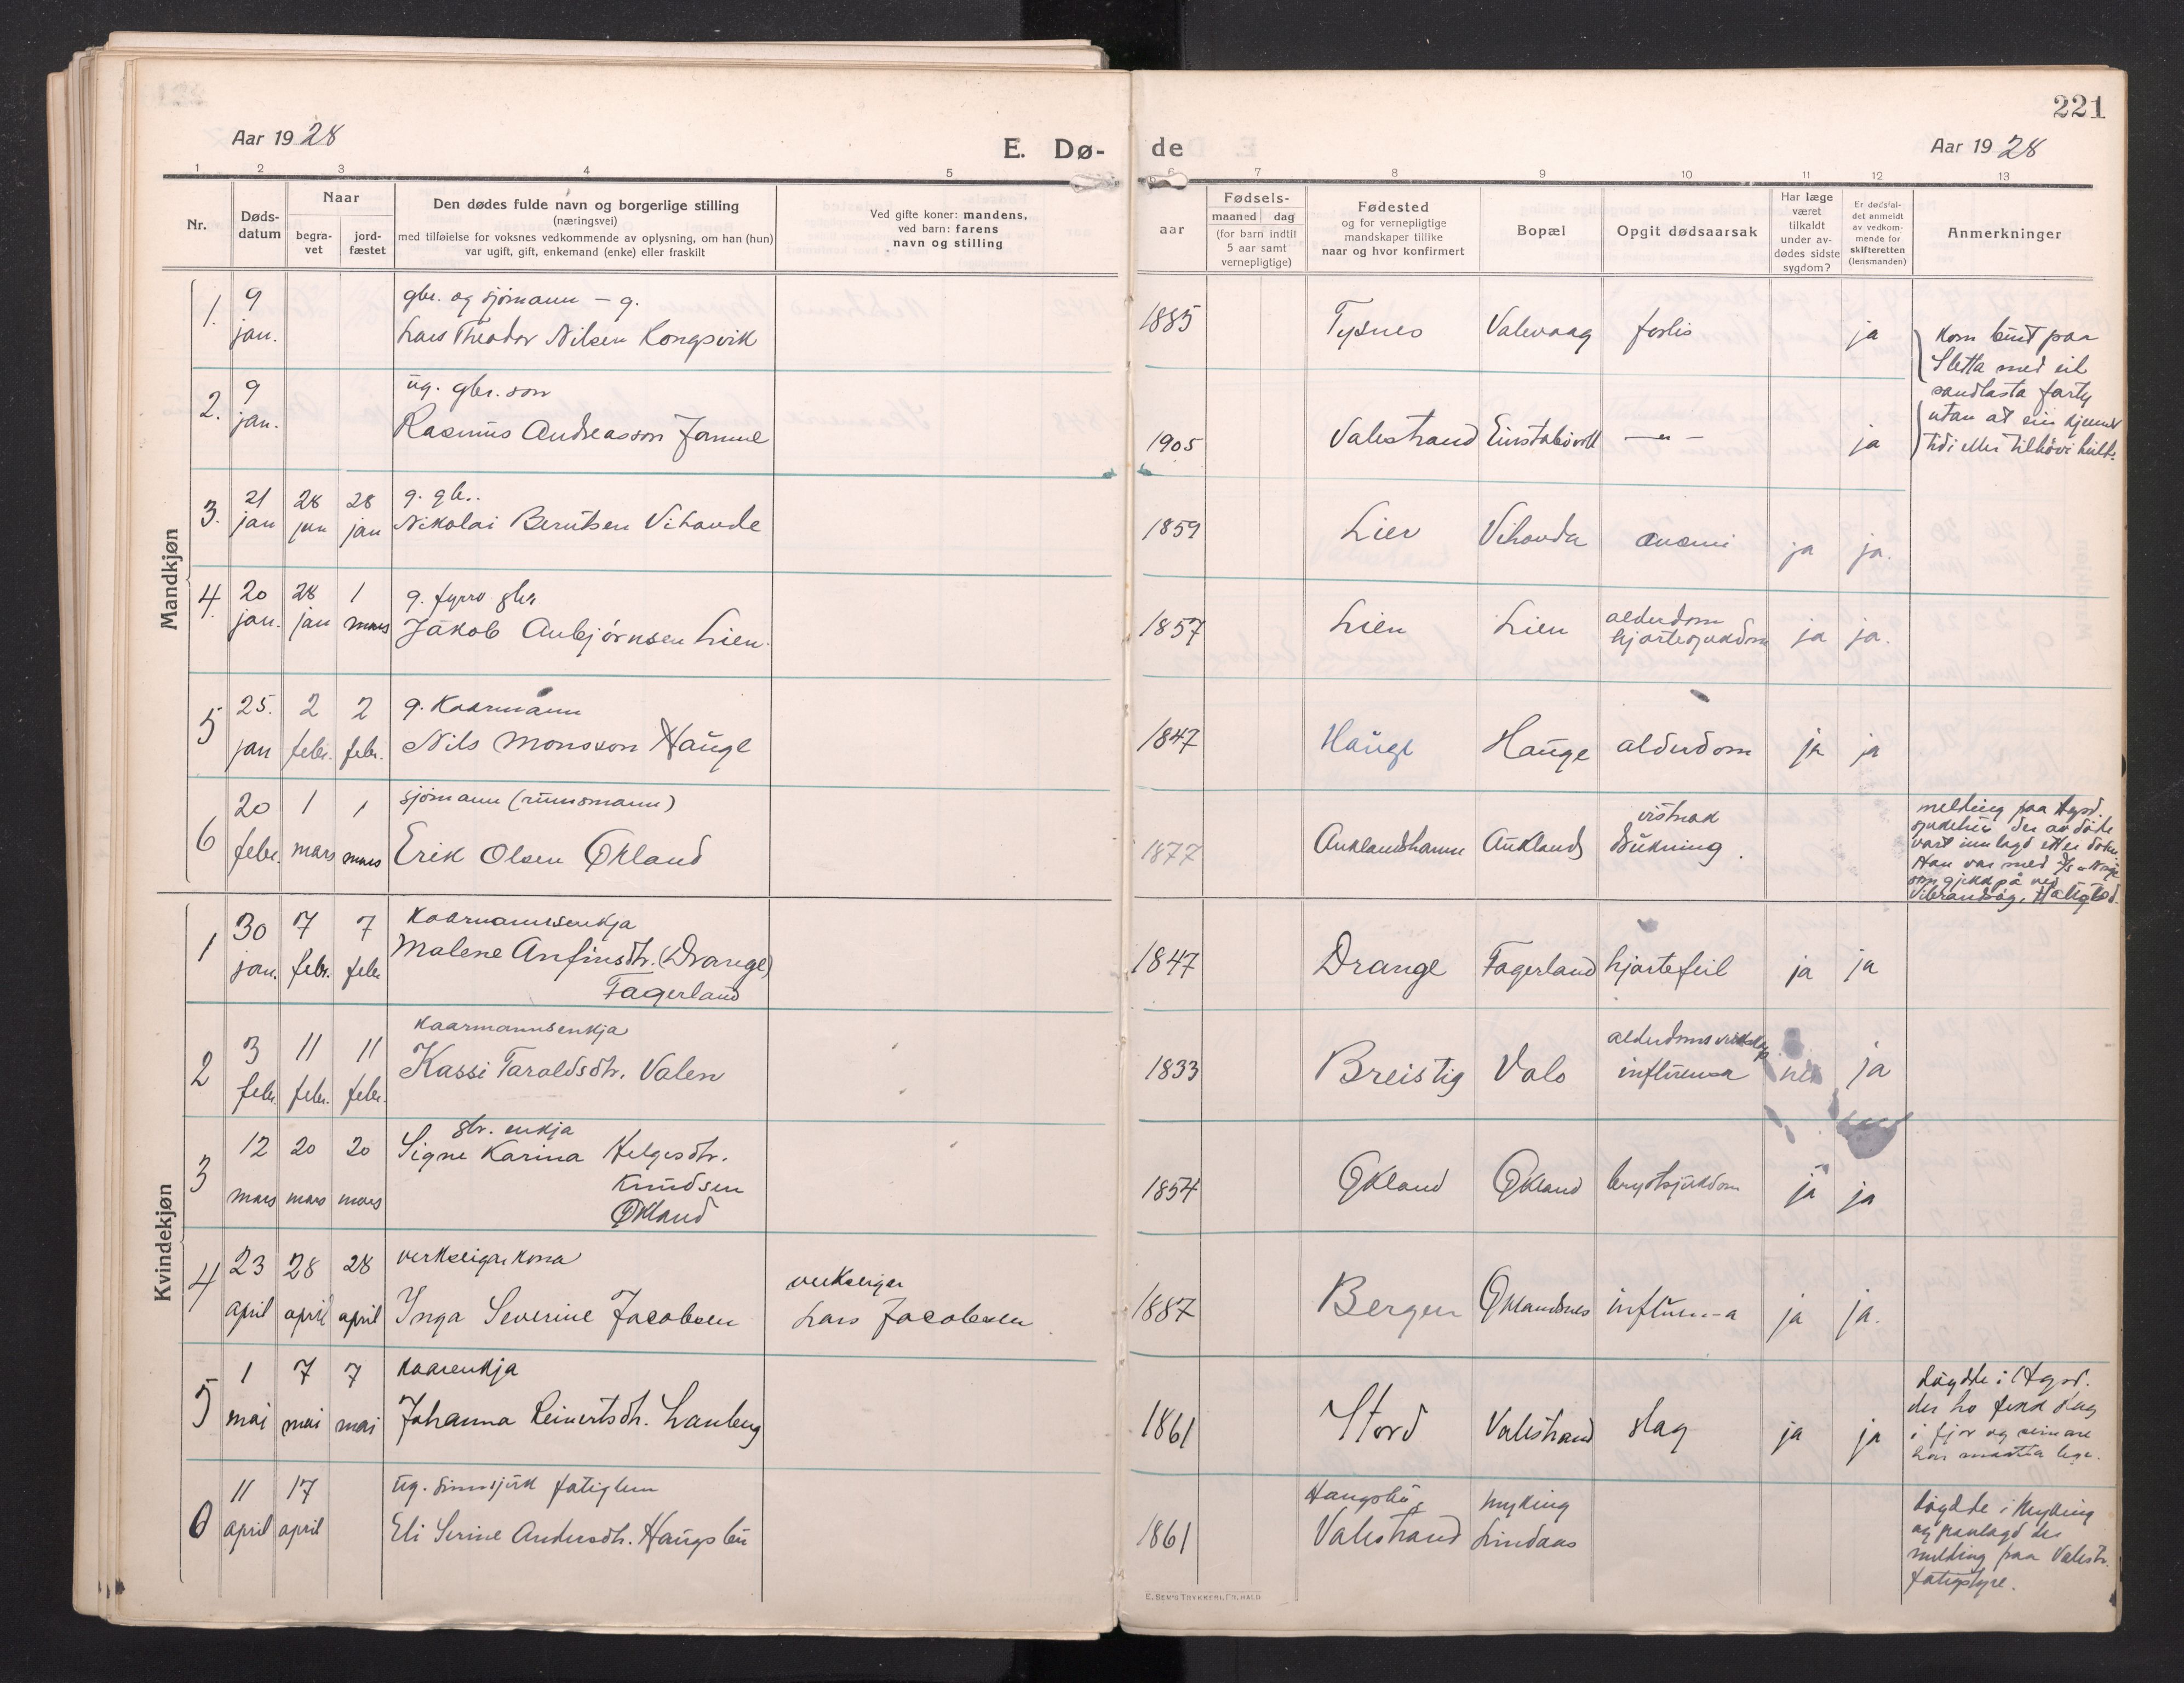 221
Aar 1928
E. Dø-
de
Aar 1928
1 2 3 4 5 6 7 8 9 10 11 12 13
Nr.
Døds-
datum
Naar
begra-
vet
jord-
fæstet
Den dødes fulde navn og borgerlige stilling
(næringsvei)
med tilføielse for voksnes vedkommende av oplysning, om han (hun)
var ugift, gift, enkemand (enke) eller fraskilt
Ved gifte koner: mandens,
ved barn: farens
navn og stilling
aar
Fødsels-
maaned dag
(for barn indtil
5 aar samt
vernepligtige)
Fødested
og for vernepligtige
mandskaper tillike
naar og hvor konfirmert
Bopæl
Opgit dødsaarsak
Har læge
været
tilkaldt
under av-
dødes sidste
sygdom?
Er dødsfal-
det anmeldt
av vedkom-
mende for
skifteretten
(lensmanden)
Anmerkninger
Mandkjøn
9 gbr. og sjømann - g.
1. jan. Lars Theodor Nilsen Kongsvik 1885 Tysnes Valevaag forlis ja
Kom burt paa
Sletta med eit
sandlasta farty
utan at ein kjenner
tid eller tilhøve
9 ug. gbr. son
2. jan. Rasmus Andreasson 1905 Valestrand -"- ja
21 28 28 g. gb..
3. jan jan jan Nikolai Berntsen Vihovde 1859 Lier Vihovda anæmi ja ja.
20 28 1 g. fyrrv. gbr
4. jan. jan mars Jakob Anbjørnsen Lien. 1857 Lien Lien alderdom
hjartesjukdom ja ja.
25. 2 2 g. Kaarmann
5 jan febr. febr. Nils Monsson Hauge 1847 Hauge Hauge alderdom ja ja
20 1 1 sjømann (runsmann)
6 febr. mars mars Erik Olsen Økland 1877 Auklandshamn Aukland vistnok
drukning.
melding paa
sjukehus der
vart innlagd
Han var med
som gjekk på ved
Kvindekjøn
30 7 7 Kaarmannsenkja
1 jan. febr. febr Malene Anfinsdtr. (Drange)
Fagerland 1847 Drange Fagerland hjartefeil ja ja
3 11 11 Kaarmannsenkja
2 febr. febr. febr. Kassi Taraldsdtr. Valen 1833 Breistig Valo
influensa nei ja
12 20 20 gbr. enkja
3 mars mars mars Signe Karina Helgesdtr.
Knudsen
Økland 1854 Økland Økland brystsjukdom ja ja
23 28 28 verkseigarkona
4 april april april Inga Severine Jacobsen
verkseigar
Lars Jacobsen 1887 Bergen Øklandsnes ja ja.
1 7 7 kaarenkja
5 mai mai mai Johanna Reinertsdtr. Lanberg 1861 Stord Valestrand slag ja ja
døydde i
der ho fekk slag
i fjor og seinare
11 17 ug. sinnsjuk fatiglem
6 april april Eli Serine Andersdtr. Haugsbø 1861 Haugsbø
Valestrand Myking
Lindaas
døydde i Myking
melding paa Valestr.
fatigstyre.
E. SEM'S TRYKKERI, FR.HALD